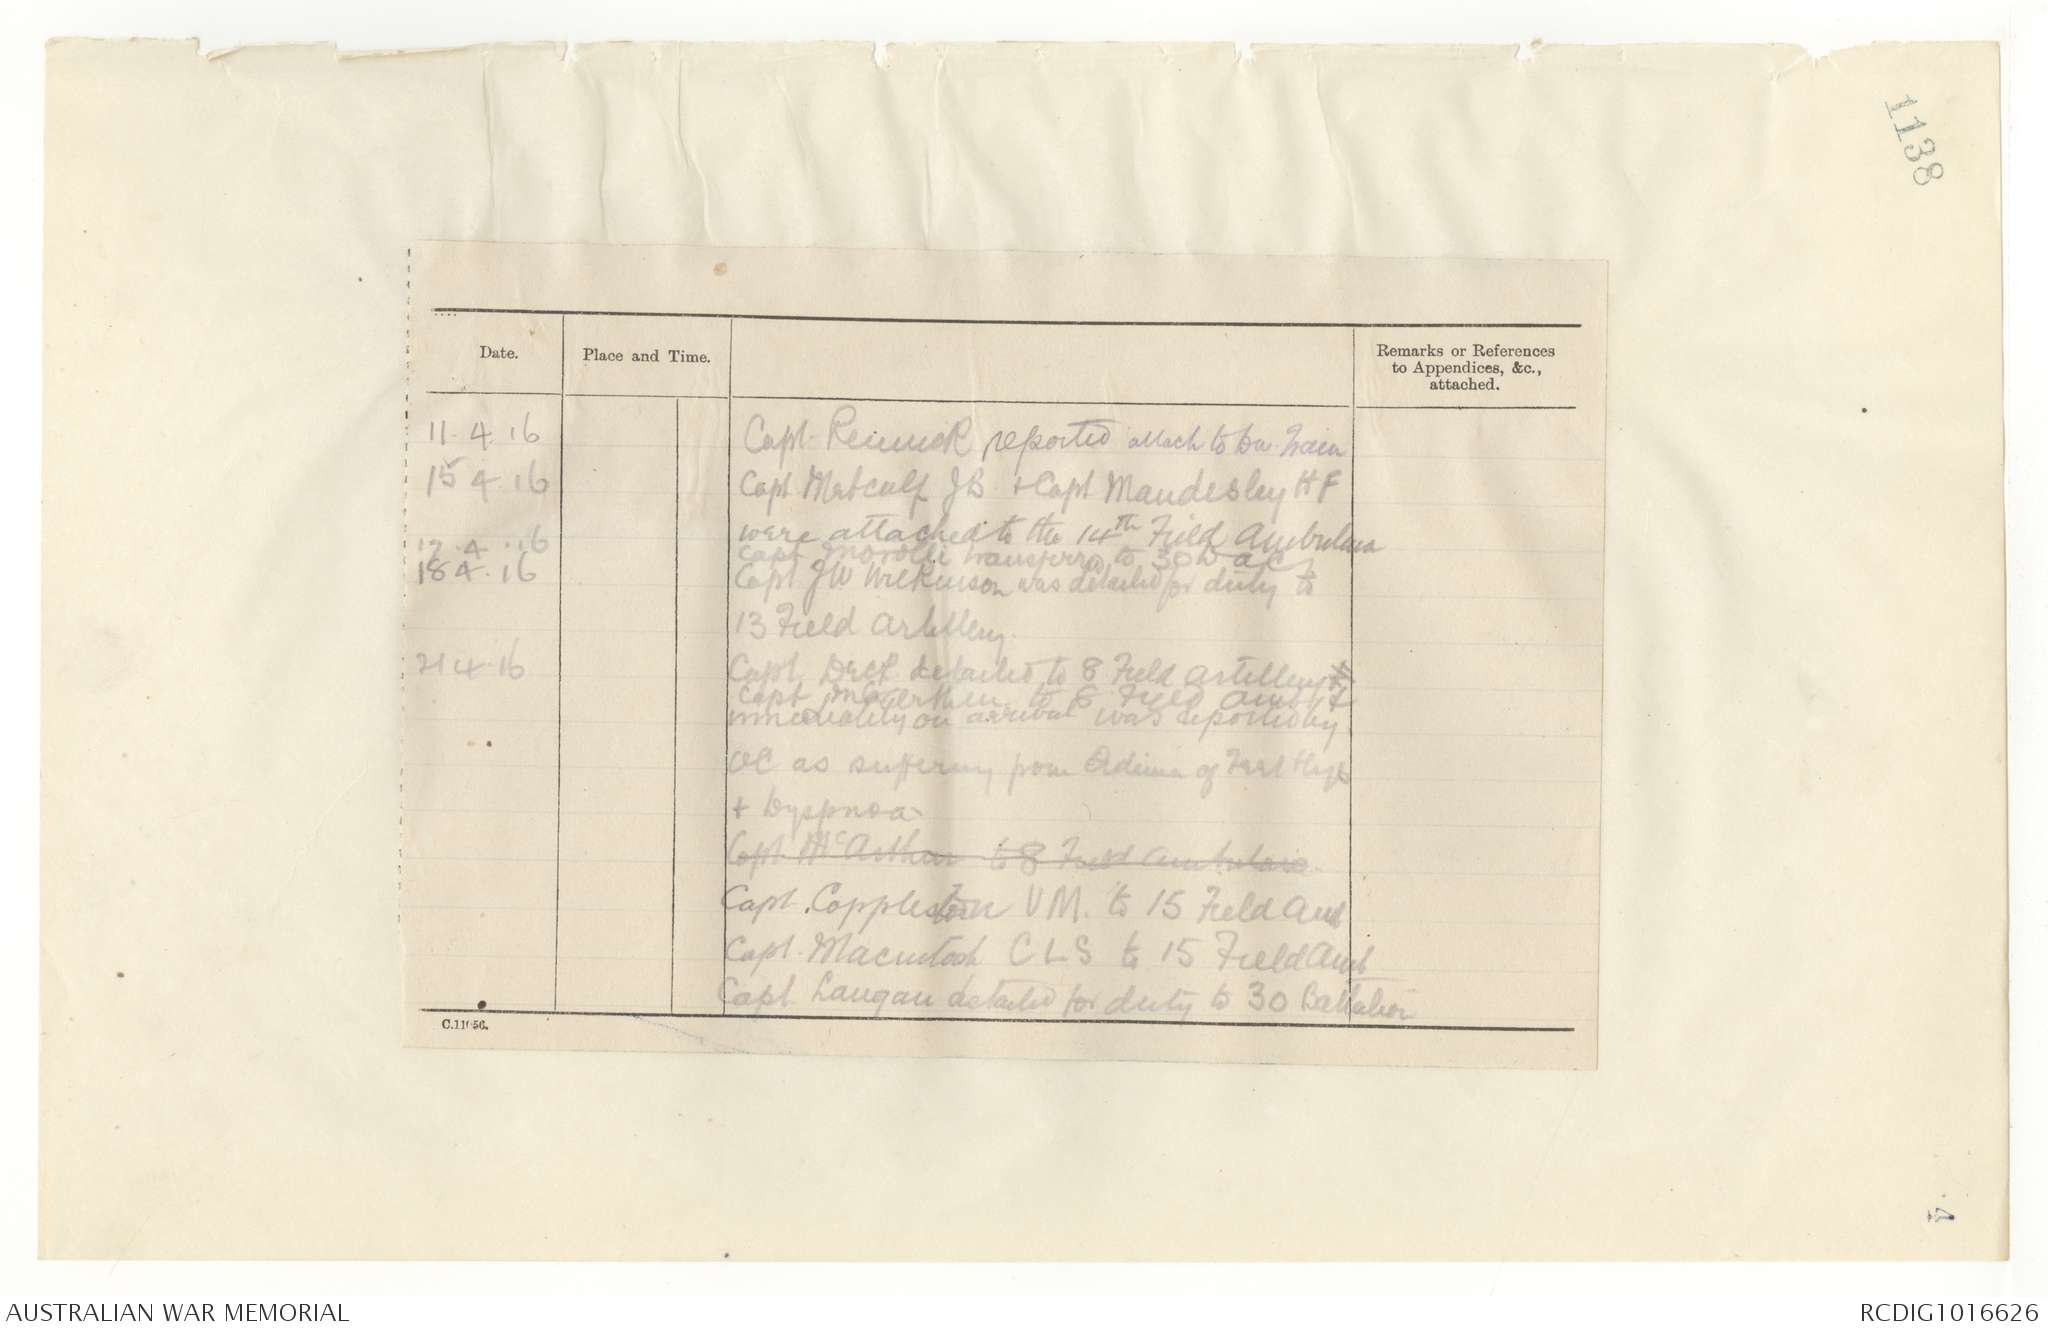 1138
Date.
Place and Time.
Remarks or References
to Appendices, &c.,
attached.
11.4.16 Capt. reported attach to Train
15 4.16 Capt. Metcalf J B. + Capt Maudesley H F
were attached to the 14th Field Ambulance
17.4.16 Capt transferred to
18 4.16 Capt. JW Wilkinson was detailed for duty to
13 Field Artillery.
21 4.16 Capt. detailed to 8 Field Artillery
Capt McArthur to 8 Field Amb
immediately on arrival was reported by
OC as suffering from of
+ Dyspnoa
Capt McArthur to 8 Field Ambulance
Capt. Copplestone V M. to 15 Field Amb
Capt. Macintosh C L S to 15 Field Amb
Capt Langan detailed for duty to 30 Battalion
AUSTRALIAN WAR MEMORIAL
RCDIG1016626